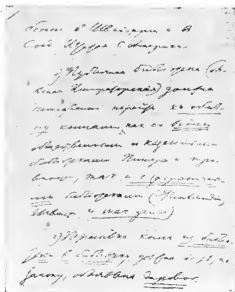 бенно в Швейцарии и в
Соед. Штатах С. Америки.
1) Публичная библиотека (бы-
вшая Императорская) должна
немедленно перейти к обме-
ну книгами, как со всеми
общественными и казенными
библиотеками Питера и про-
винции, так и с загранич-
ными библиотеками (Финляндии,
Швеции и так далее)
2) Пересылка книг из библио-
теки в библиотеку должна быть, по
закону, объявлена даровой.